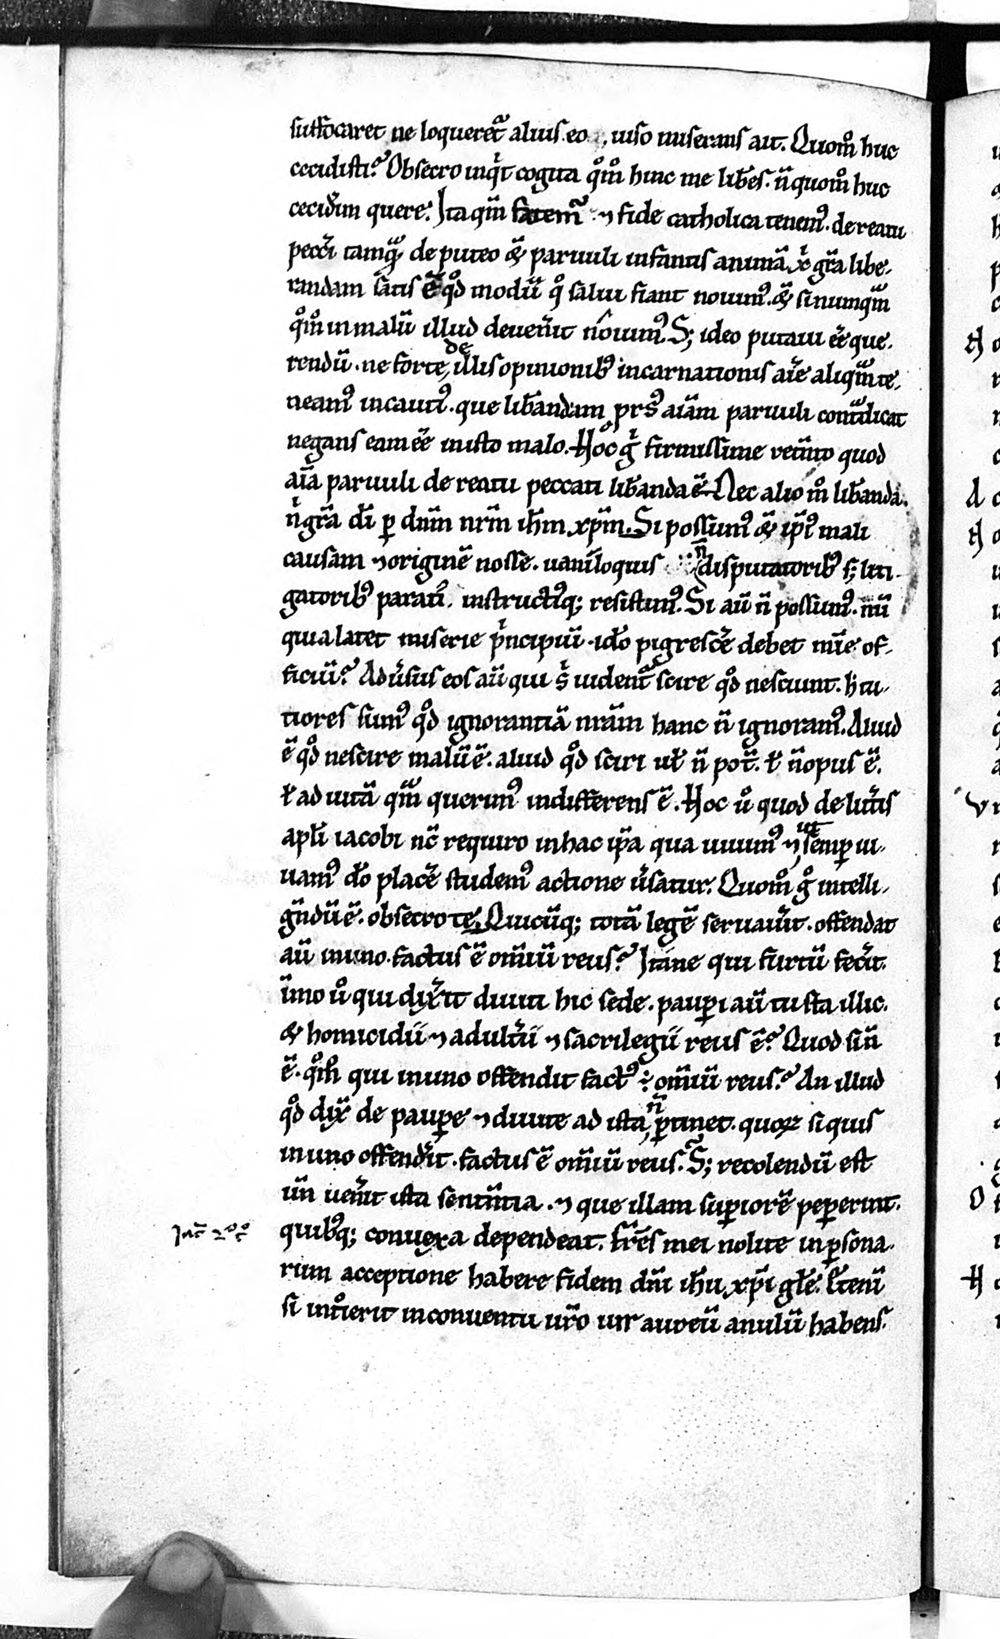 suffocaret ne loqueret᷑ alius. eo uiso miserans ait. Quom̊ huc
cecidisti? Obsecro inqͥt cogita qͦm̊ hinc me lib̃es. ñ quom̊ huc
cecid̃im quere. Ita qm̃ fatem᷑ ⁊ fide catholica tenemꝰ. de reatu
pecc̃i tamqᷓ de puteo & paruuli infantis animã xp̃i gr̃a libe-
randam satis ẽ qͦd modũ qͦ salui fiant nouimꝰ. & si numqᷓm
qͦm̊ in malũ illud deuen̾it nouimꝰ. S; ideo putaui eẽ que-
rendũ. ne forte de illis opinionibꝰ incarnationis aĩe aliqᷓm te-
neamꝰ incautiꝰ. que lib̃andam prs̾ aĩam paruuli contᷓdicat
negans eam eẽ in isto malo. Hoc gͦ firmissime retinto quod
aĩa paruuli de reatu peccati lib̃anda ẽ. Nec alio m̊ lib̃anda.
nͥ gr̃a dĩ ꝑ dñm nr̃m ih̃m xp̃m. Si possumꝰ & ip̃iꝰ mali
causam ⁊ originẽ nosse. uaniloquis ñ disputatoribꝰ s; liti-
gatoribꝰ parati instructiꝰq; resistimꝰ. Si aũ ñ possumꝰ. nũ
quia latet miserie pͥncipiũ. id̾o pigresc̾e debet mĩe of-
ficiũ? Adu̾sus eos aũ qui sͥ uident᷑ scire qͦd nesciunt. h̾ tu-
tiores sumꝰ qͦd ignorantiã nr̃am hanc ñ ignoramꝰ. Aliud
ẽ qͦd nescire malũ ẽ. aliud qͦd sciri uł ñ pot̃. ł ñ opus ẽ.
ł ad uitã qᷓm querimꝰ indifferens ẽ. Hoc ů quod de litt̾is
apl̃i iacobi nc̃ requiro in hac ip̃a qua uiuimꝰ ⁊ ut semꝑ ui-
uamꝰ d̾o plac̾e studemꝰ actione u̾satur. Quom̊ gͦ intelli-
g̾ndũ ẽ. obsecro te. Quicũq; totã legẽ seruau̾it. offendat
aũ in uno. factus ẽ om̃iũ reus? Itane qui furtũ fec̾it.
ĩmo ů qui dix̾it diuiti hic sede. pauꝑi aũ tu sta illic.
& homicidii ⁊ adult̾ii ⁊ sacrilegii reus ẽ? Quod si ñ
ẽ. qͦm̊ qui in uno offendit factꝰ ÷ om̃iũ reus? An illud
qͦd dix̾ de pauꝑe ⁊ diuite ad ista ñ ꝑtinet. quoꝝ si quis
in uno offend̾it. factus ẽ om̃iũ reus. S; recolendũ est
uñ uen̾it ista sentẽntia. ⁊ que illam suꝑiorẽ peꝑerint.
quibꝰq; conuexa dependeat. fr̃es mei nolite in ꝑsona-
rum acceptione habere fidem dñi ih̃u xp̃i gl̃e. Et̾eni
si int̾ierit in conuentu ur̃o uir aureũ anulũ habens.